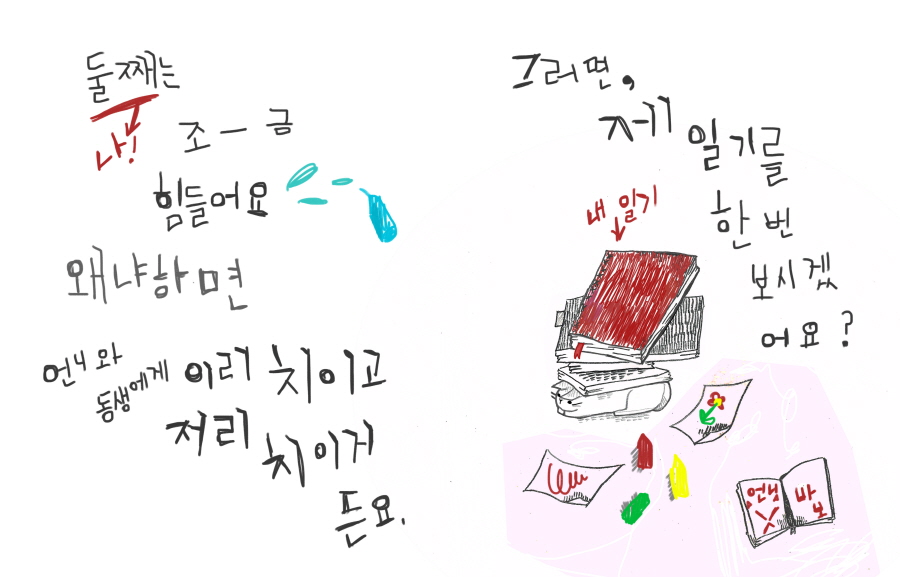 둘째는
나!
조 — 금
힘들어요
왜냐하면
언니와
동생에게 이리 치이고
저리
치이거
든요.
그러면,
제
일기를
한 번
보시겠
어요?
내 일기
바
보